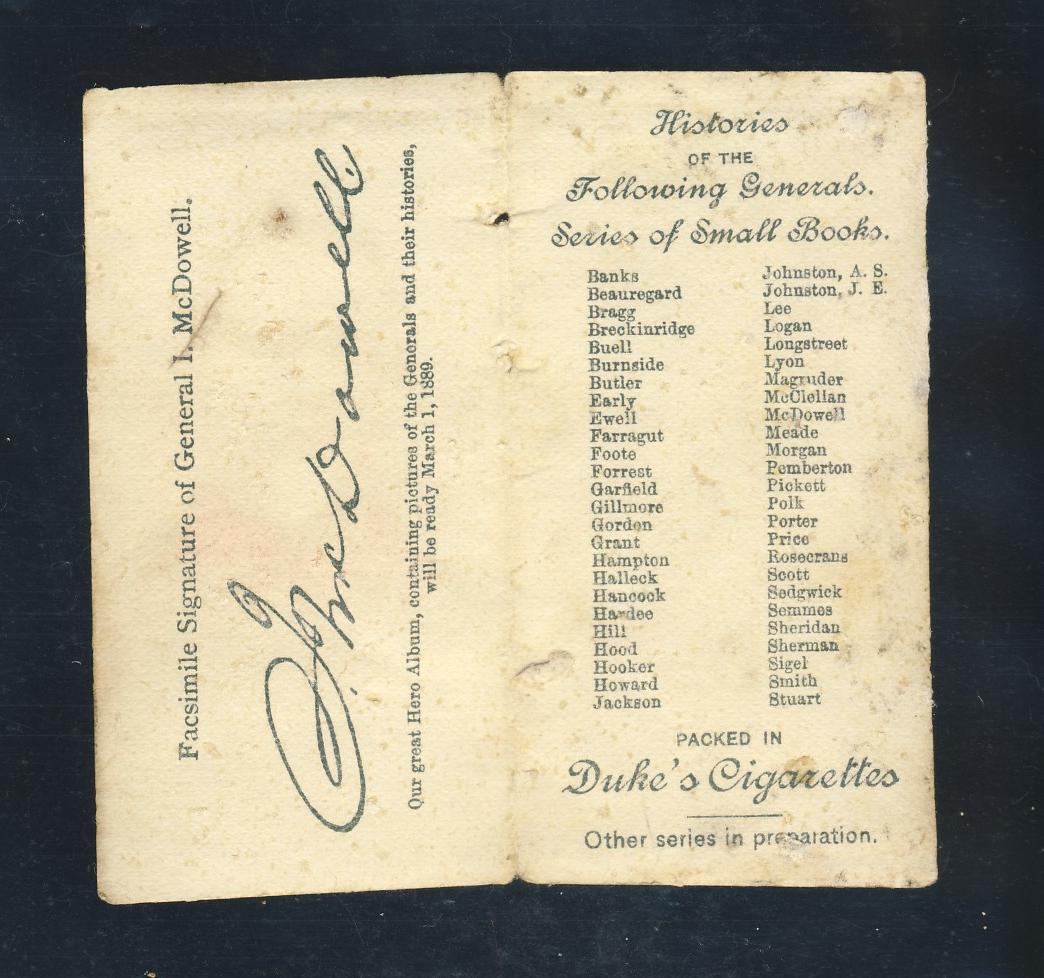 Facsimile Signature of General I. McDowell.
I. McDowell
Our great Hero Album, containing pictures of the Generals and their histories,
will be ready March 1, 1889.
Histories
OF THE
Following Generals.
Series of Small Books.
Banks
Beauregard
Bragg
Breckinridge
Buell
Burnside
Butler
Early
Ewell
Farragut
Foote
Forrest
Garfield
Gillmore
Gordon
Grant
Hampton
Halleck
Hancock
Hardee
Hill
Hood
Hooker
Howard
Jackson
Johnston, A. S.
Johnston, J. E.
Lee
Logan
Longstreet
Lyon
Magruder
McClellan
McDowell
Meade
Morgan
Pemberton
Pickett
Polk
Porter
Price
Rosecrans
Scott
Sedgwick
Semmes
Sheridan
Sherman
Sigel
Smith
Stuart
PACKED IN
Duke's Cigarettes
Other series in preparation.